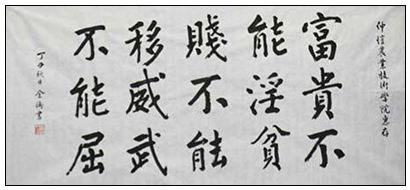 仲恺农业技術学院惠存
富貴不
能淫貧
賤不能
移威武
不能屈
丁丑秋月
金濤書